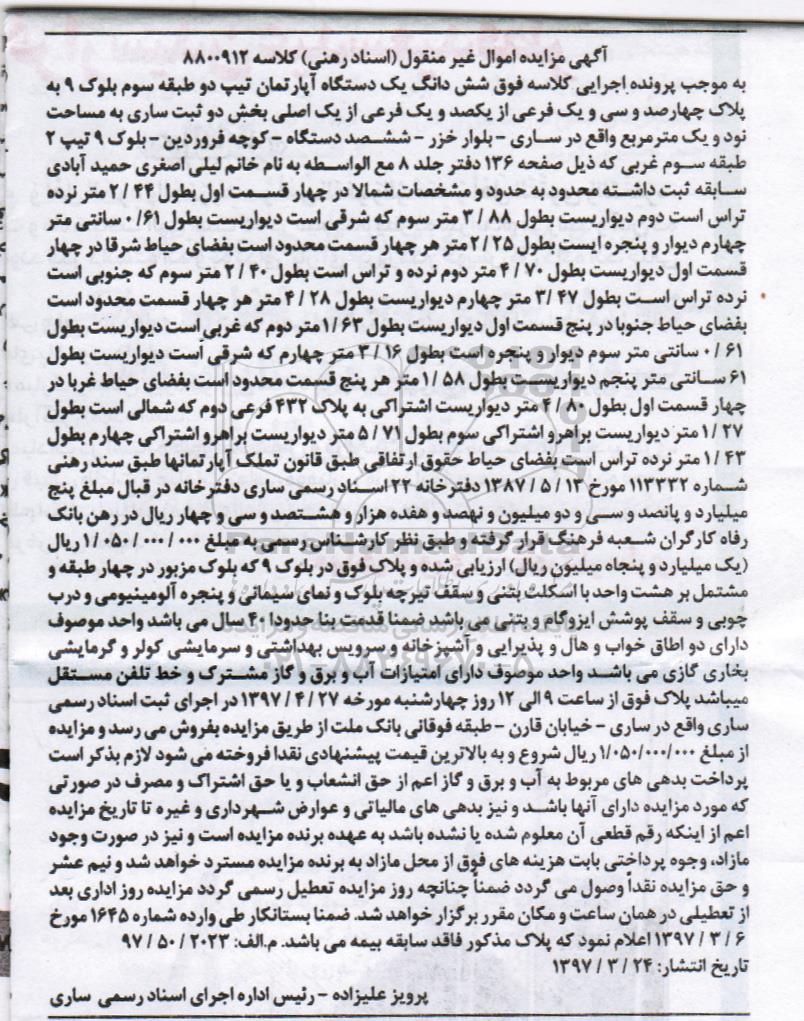 آگهی مزایده اموال غیر منقول (اسناد رهنی) کلاسه ۸۸۰۰۹۱۲
به موجب پرونده اجرایی کلاسه فوق شش دانگ یک دستگاه آپارتمان تیپ دو طبقه سوم بلوک ۹ به
پلاک چهارصد و سی و یک فرعی از یکصد و یک فرعی از یک اصلی بخش دو ثبت ساری به مساحت
نود و یک مترمربع واقع در ساری - بلوار خزر - ششصد دستگاه - کوچه فروردین - بلوک ۹ تیپ ۲
طبقه سوم غربی که ذیل صفحه ۱۳۶ دفتر جلد ۸ مع الواسطه به نام خانم لیلی اصغری حمید آبادی
سابقه ثبت داشته محدود به حدود و مشخصات شمالا در چهار قسمت اول بطول ۴۴ / ۲ متر نرده
تراس است دوم دیواریست بطول ۸۸ / ۳ متر سوم که شرقی است دیواریست بطول ۶۱ / ۰ سانتی متر
چهارم دیوار و پنجره ایست بطول ۲۵ / ۲ متر هر چهار قسمت محدود است بفضای حیاط شرقا در چهار
قسمت اول دیواریست بطول ۷۰ / ۴ متر دوم نرده و تراس است بطول ۴۰ / ۲ متر سوم که جنوبی است
نرده تراس است بطول ۴۷ / ۳ متر چهارم دیواریست بطول ۲۸ / ۴ متر هر چهار قسمت محدود است
بفضای حیاط جنوبا در پنج قسمت اول دیواریست بطول ۶۳ / ۱ متر دوم که غربی است دیواریست بطول
۶۱ / ۰ سانتی متر سوم دیوار و پنجره است بطول ۱۶ / ۳ متر چهارم که شرقی است دیواریست بطول
۶۱ سانتی متر پنجم دیواریست بطول ۵۸ / ۱ متر هر پنج قسمت محدود است بفضای حیاط غربا در
چهار قسمت اول بطول ۸۰ / ۴ متر دیواریست اشتراکی به پلاک ۴۳۲ فرعی دوم که شمالی است بطول
۲۷ / ۱ متر دیواریست براهرو اشتراکی سوم بطول ۷۱ / ۵ متر دیواریست براهرو اشتراکی چهارم بطول
۴۳ / ۱ متر نرده تراس است بفضای حیاط حقوق ارتفاقی طبق قانون تملک آپارتمانها طبق سند رهنی
شماره ۱۱۳۳۳۲ مورخ ۱۳ / ۵ / ۱۳۸۷ دفترخانه ۲۲ اسناد رسمی ساری دفتر خانه در قبال مبلغ پنج
میلیارد و پانصد و سی و دو میلیون و نهصد و هفده هزار و هشتصد و سی و چهار ریال در رهن بانک
رفاه کارگران شعبه فرهنگ قرار گرفته و طبق نظر کارشناس رسمی به مبلغ ۰۰۰ / ۰۰۰ / ۰۵۰ / ۱ ریال
(یک میلیارد و پنجاه میلیون ریال) ارزیابی شده و پلاک فوق در بلوک ۹ که بلوک مزبور در چهار طبقه و
مشتمل بر هشت واحد با اسکلت بتنی و سقف تیرچه بلوک و نمای سیمانی و پنجره آلومینیومی و درب
چوبی و سقف پوشش ایزوگام و بتنی می باشد ضمنا قدمت بنا حدودا ۴۰ سال می باشد واحد موصوف
دارای دو اطاق خواب و هال و پذیرایی و آشپزخانه و سرویس بهداشتی و سرمایشی کولر و گرمایشی
بخاری گازی می باشند واحد موصوف دارای امتیازات آب و برق و گاز مشترک و خط تلفن مستقل
میباشد پلاک فوق از ساعت ۹ الی ۱۲ روز چهارشنبه مورخه ۲۷ / ۴ / ۱۳۹۷ در اجرای ثبت اسناد رسمی
ساری واقع در ساری - خیابان قارن - طبقه فوقانی بانک ملت از طریق مزایده بفروش می رسد و مزایده
از مبلغ ۱/۰۵۰/۰۰۰/۰۰۰ ریال شروع و به بالاترین قیمت پیشنهادی نقدا فروخته می شود لازم بذکر است
پرداخت بدهی های مربوط به آب و برق و گاز اعم از حق انشعاب و یا حق اشتراک و مصرف در صورتی
که مورد مزایده دارای آنها باشد و نیز بدهی های مالیاتی و عوارض شهرداری و غیره تا تاریخ مزایده
اعم از اینکه رقم قطعی آن معلوم شده یا نشده باشد به عهده برنده مزایده است و نیز در صورت وجود
مازاد، وجوه پرداختی بابت هزینه های فوق از محل مازاد به برنده مزایده مسترد خواهد شد و نیم عشر
و حق مزایده نقداً وصول می گردد ضمناً چنانچه روز مزایده تعطیل رسمی گردد مزایده روز اداری بعد
از تعطیلی در همان ساعت و مکان مقرر برگزار خواهد شد. ضمنا بستانکار طی وارده شماره ۱۶۴۵ مورخ
۶ / ۳ / ۱۳۹۷ اعلام نمود که پلاک مذکور فاقد سابقه بیمه می باشد. م.الف: ۲۰۲۳ / ۵۰ / ۹۷
تاریخ انتشار: ۲۴ / ۳ / ۱۳۹۷
پرویز علیزاده - رئیس اداره اجرای اسناد رسمی ساری
ParsNamadData
۰۲۱-۸۸۳۴۹۶۷۰-۵